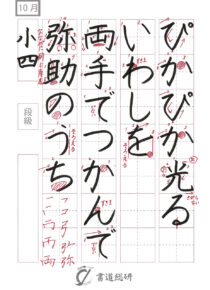 10月
ぴかぴか光る
いわしを
両手でつかんで
弥助のうち
小四
段級
書道総研